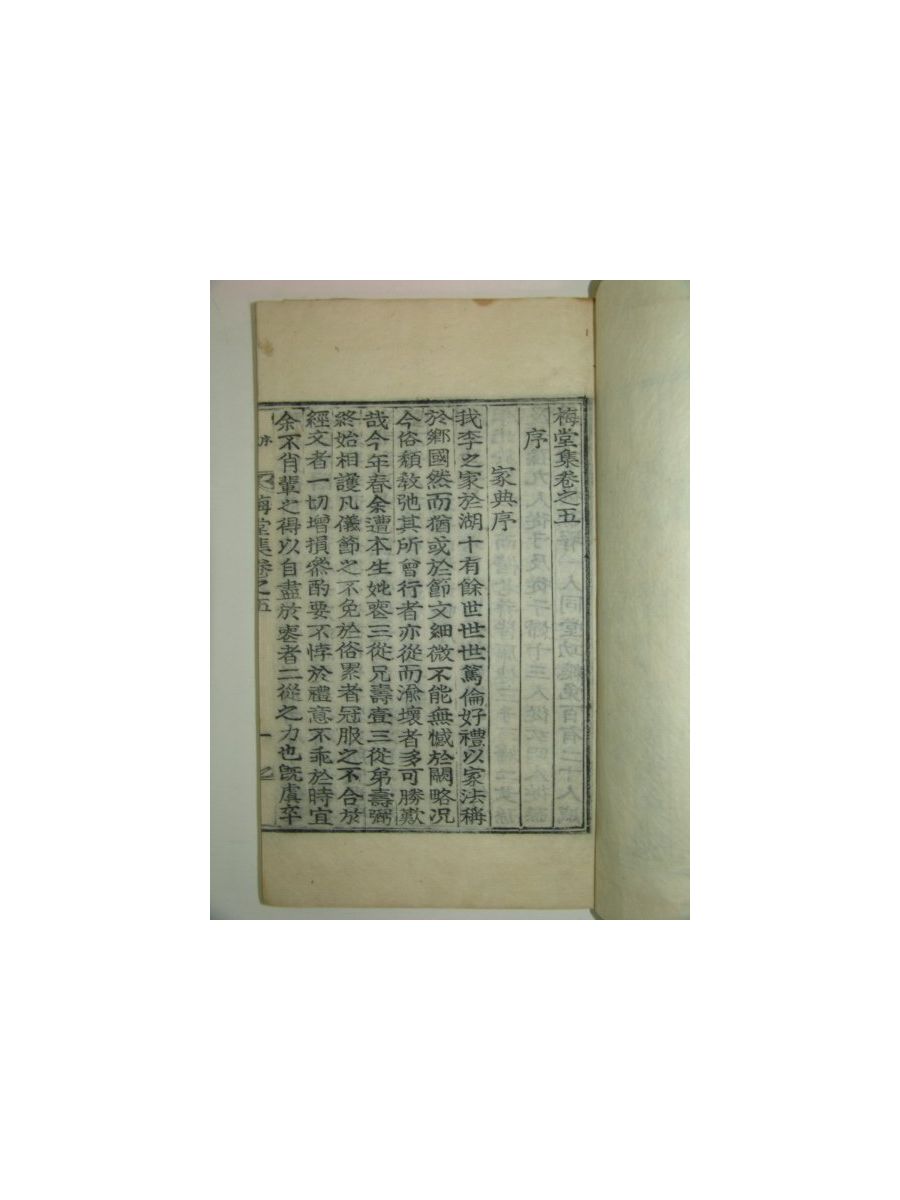 梅堂集卷之五
序
家典序
我李之家於湖十有餘世世世篤倫好禮以家法稱
於鄕國然而猶或於節文細微不能無憾於闕略况
今俗頹敎弛其所曾行者亦從而渝壞者多可勝歎
哉今年春余遭本生妣喪三從兄壽壹三從弟壽弼
終始相護凡儀節之不免於俗累者冠服之不合於
經文者一切增損叅酌要不悖於禮意不乖於時宜
余不肖輩之得以自盡於喪者二從之力也旣虞卒
序
梅堂集卷之五
一